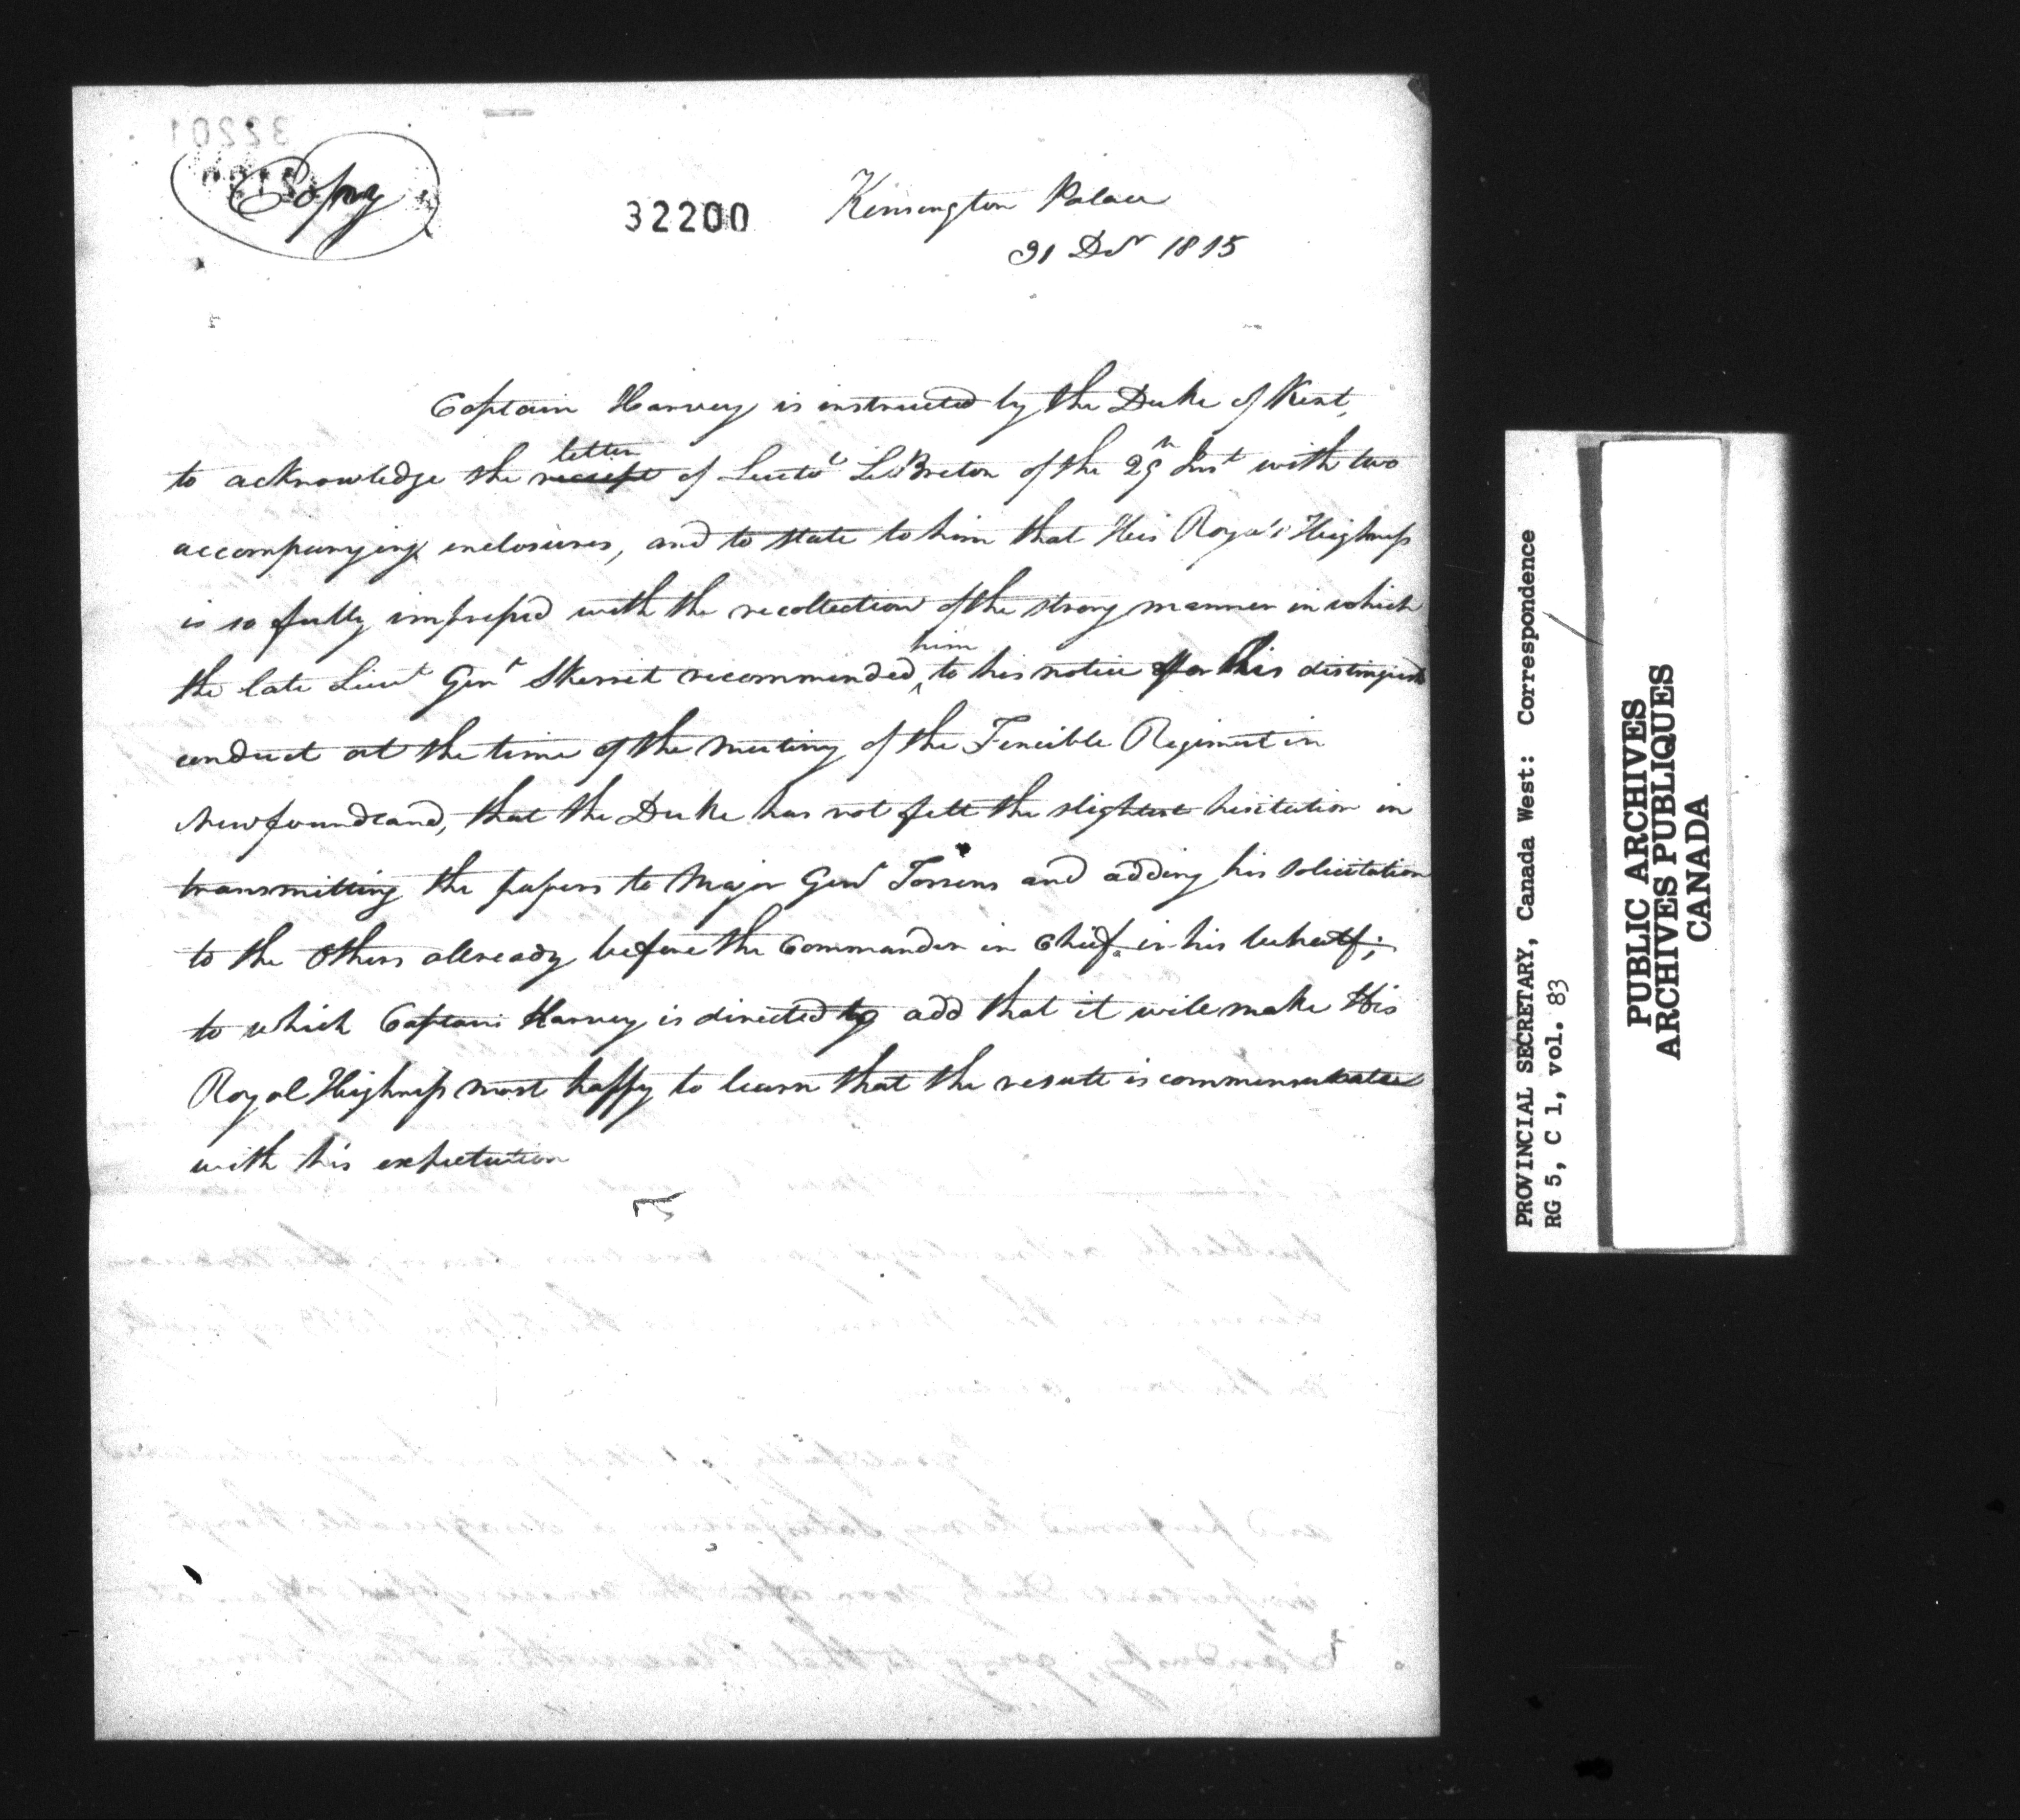 32201
Copy
32200
Kensington Palace
31 Decr 1815
Captain Harvey is instructed by the Duke of Kent,
letter
to acknowledge the receipt of Lieutt LeBreton of the 29th Inst with two
accompanying inclosures, and to state to him that His Royal Highness
is so fully impressed with the recollection of the strong manner in which
him
the late Lieut Genl Skerrit recommended to his notice for his distinguished
conduct at the time of the mutiny of the Fencible Regiment in
Newfoundland, that the Duke has not felt the slightest hesitation in
transmitting the papers to Major Genl Torrens and adding his solicitation
to the others allready before the Commander in Chief in his behalf;
to which Captain Harvey is directed to add that it will make His
Royal Highness most happy to learn that the result is commensurate
with his expectation
PROVINCIAL SECRETARY, Canada West: Correspondence
RG 5, C 1, vol. 83
PUBLIC ARCHIVES
ARCHIVES PUBLIQUES
CANADA